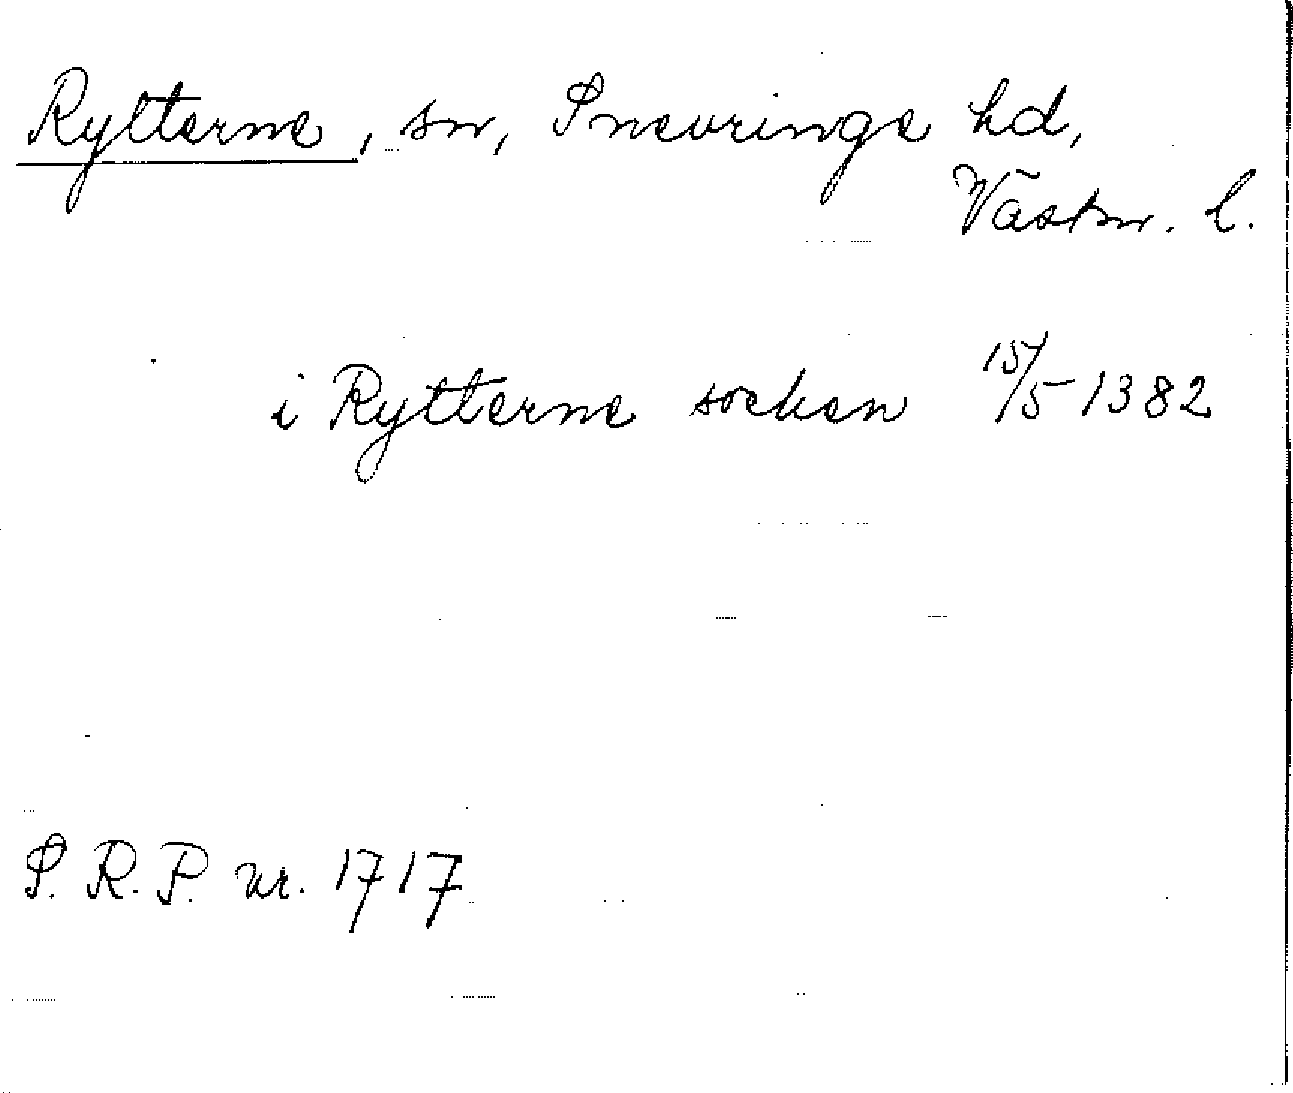 Rytterne, sn, Snevringe hd,
Västm. l.
i Rytterne socken 15/5 1382
S. R. P. nr. 1717